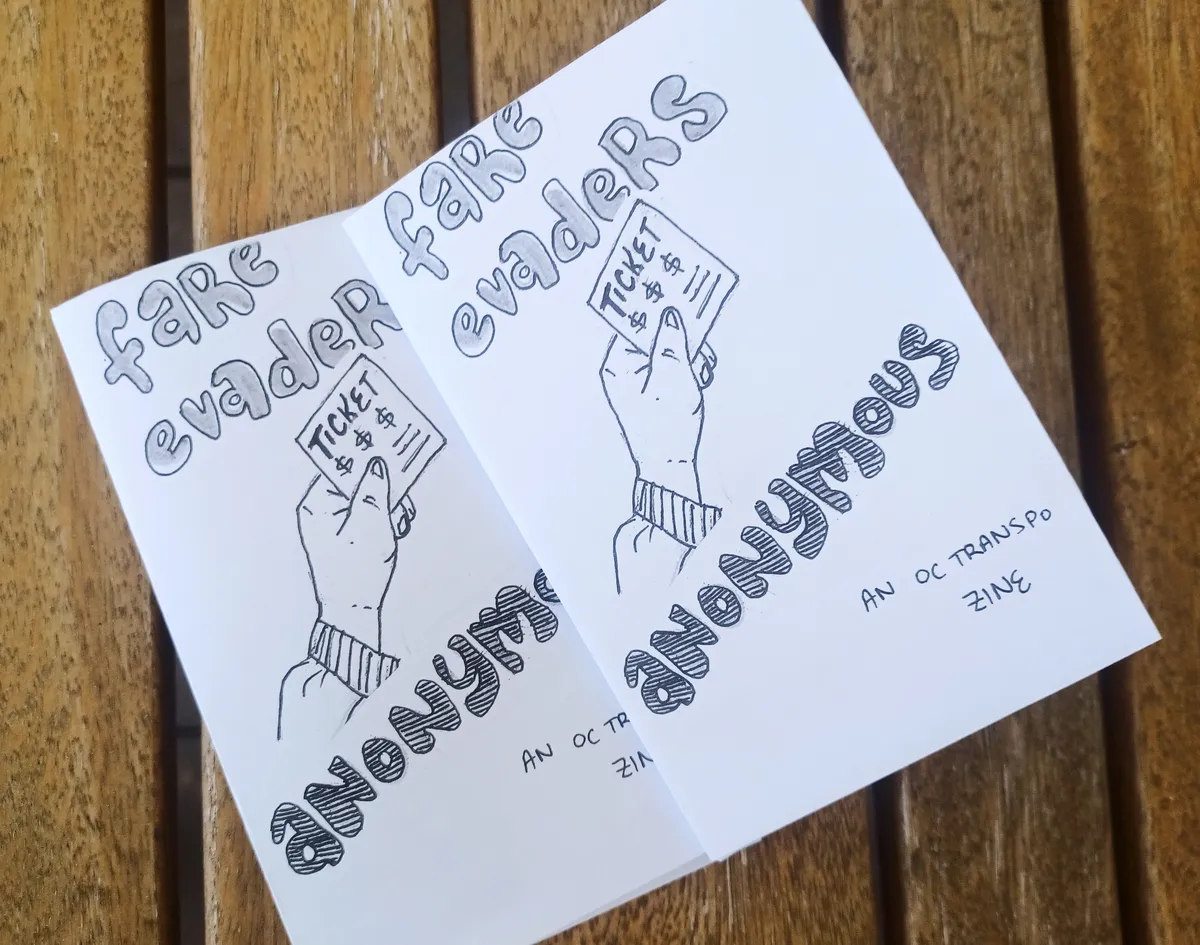 fare
evadeR
TICKET
$ $ $
anonymo
AN OC TR
ZIN
fare
evaders
TICKET
$ $ $
anonymous
AN OC TRANSPO
ZINE